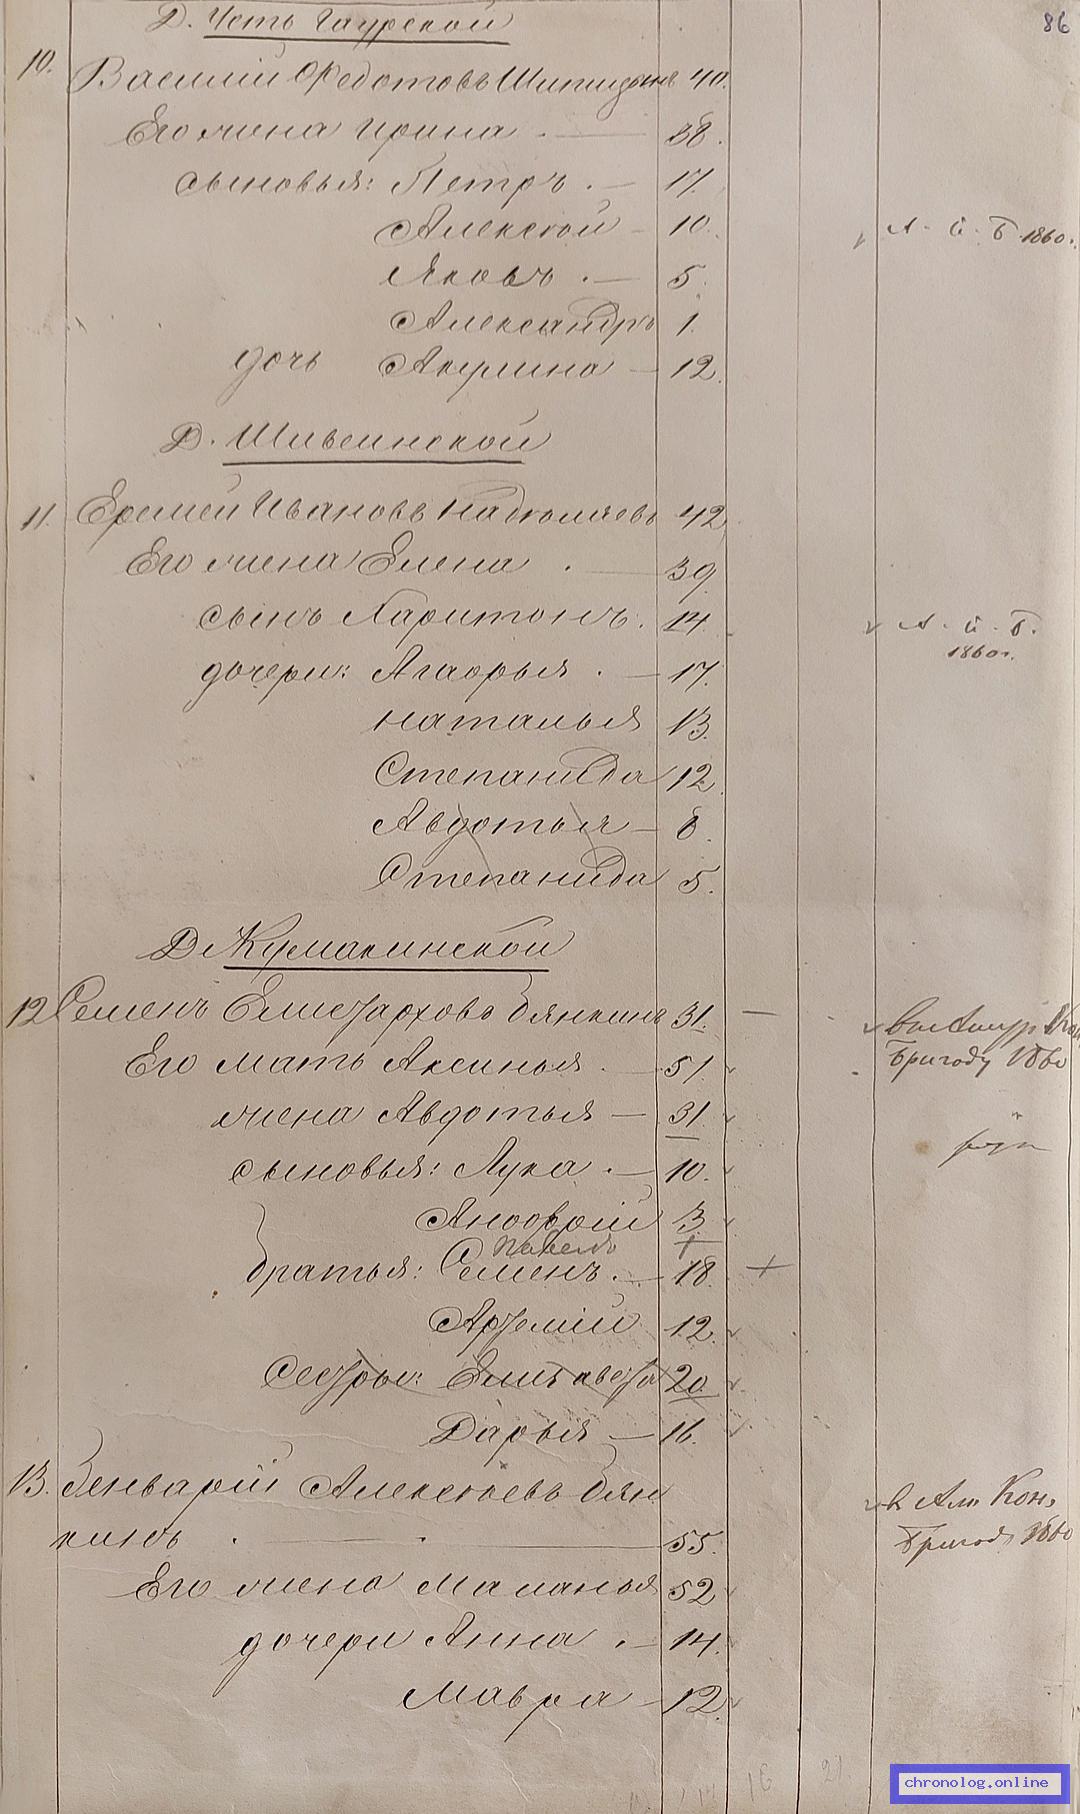 86
Д. Усть Гаурской
10. Василий Федотовъ Шипицынъ 40.
Его жена Ирина . — 38.
сыновья: Петръ . — 17.
Алексѣй — 10. А. й. Б. 1860 г.
Яковъ . — 5.
Александръ 1.
дочь Акулина — 12.
Д. Шивеинской
11. Еремей Ивановъ 42
Его жена Елена . — 39.
сынъ Харитонъ. 14. А. й. Б.
1860 г.
дочери: Агафья . — 17.
Наталья 13.
Степанида 12.
Авдотья — 8.
Степанида 5.
Д. Кумакинской
12. Семенъ Елизарховъ Бянкинъ 31. —
Бригаду 1860
Его мать Аксинья . — 51.
жена Авдотья — 31.
сыновья: Лука . — 10.
Андрей 3
Павелъ
братья: Семенъ . — 18. +
Артемій 12.
сестры: Елизавета 20.
Дарья — 16.
13. Генварій Алексѣевъ Бян
в Кон.
кинъ . — 55.
Бригад 1860
Его жена Маланья 52
дочери Анна . — 14.
Мавра — 12.
chronolog.online